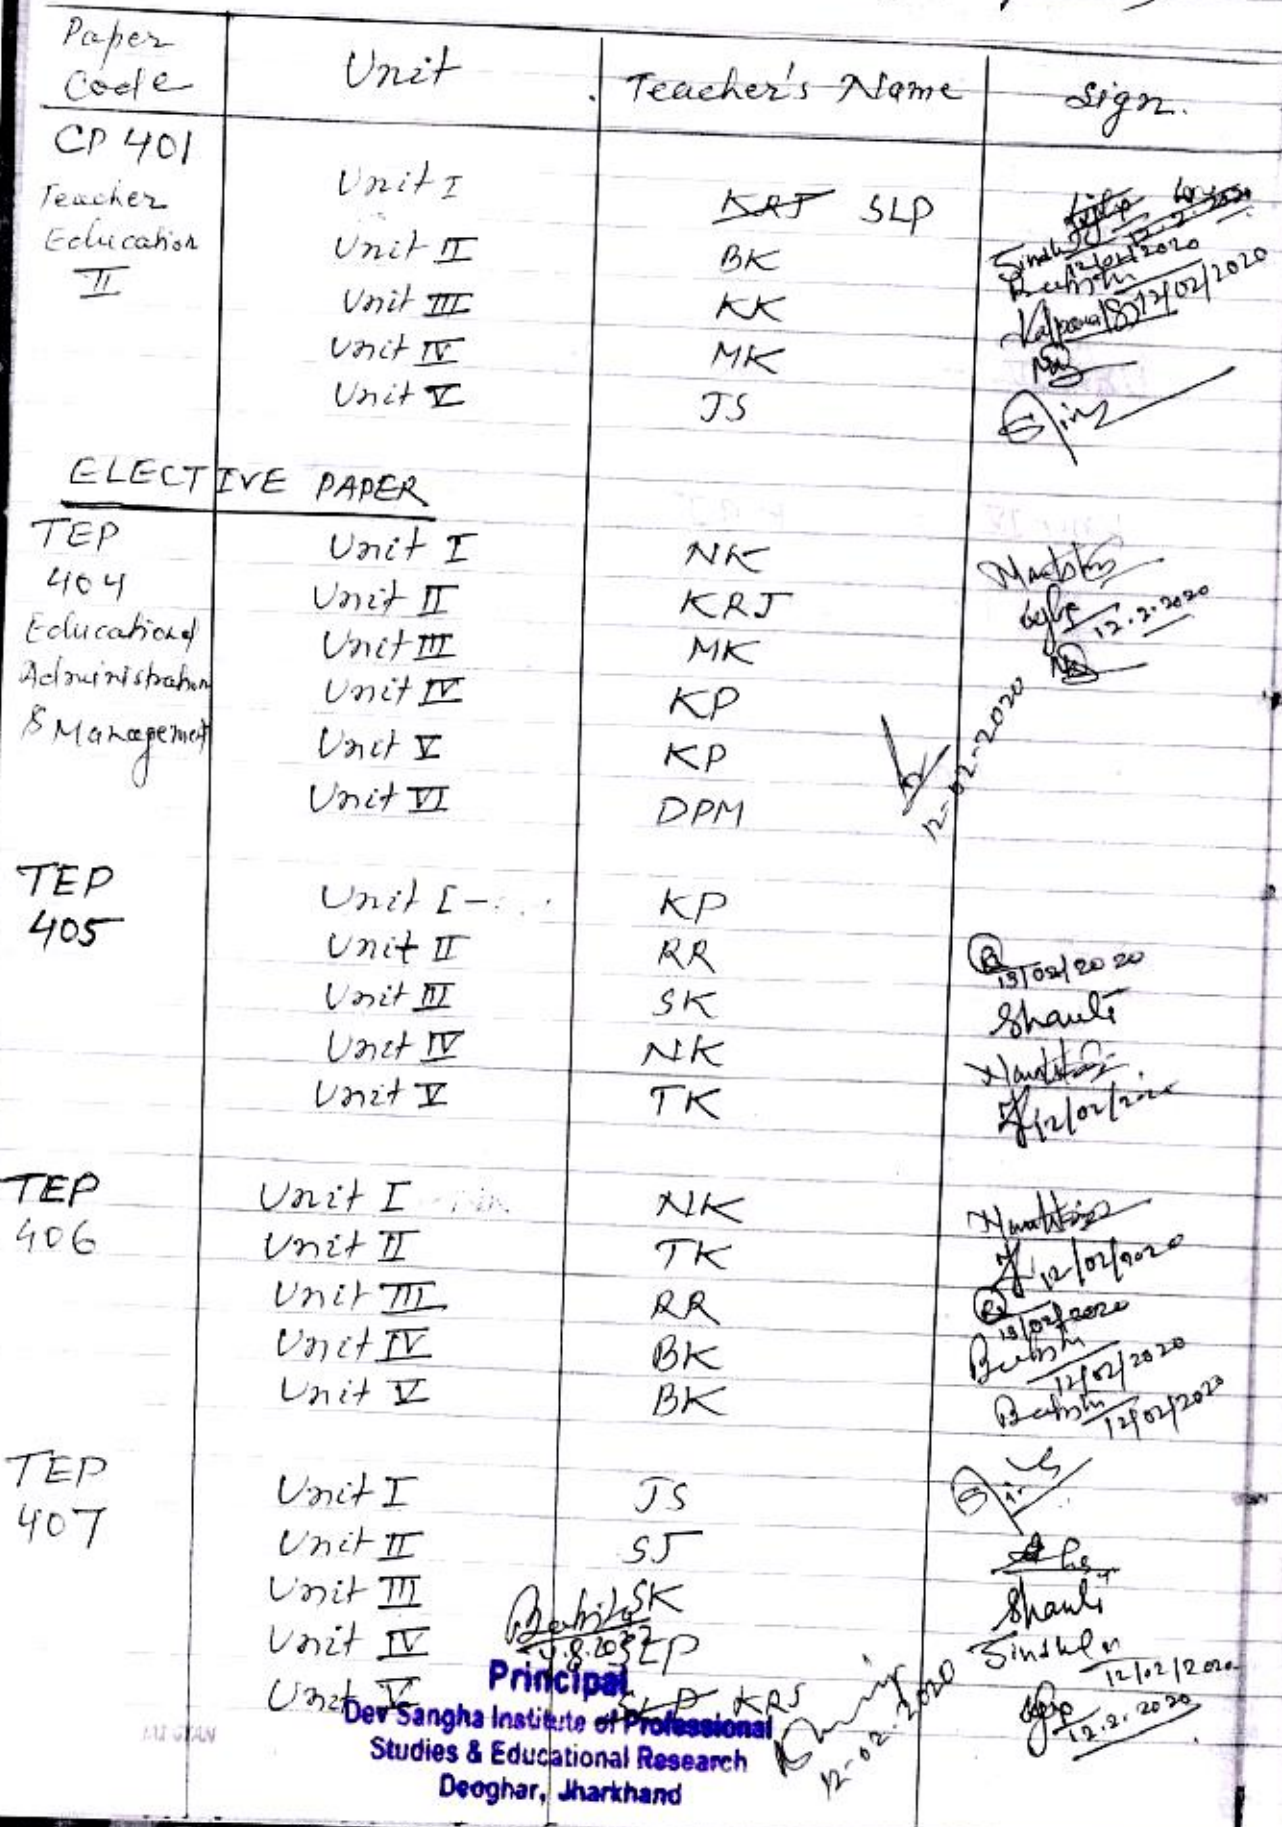 Paper Code Unit Teacher's Name Sign.
CP 401
Teacher Education II
Unit I KRJ SLP 12.2.2020
Unit II BK 12/02/2020
Unit III KK Kalpana 12/02/2020
Unit IV MK
Unit V JS
ELECTIVE PAPER
TEP 404
Educational Administration & Management
Unit I NK
Unit II KRJ 12.2.2020
Unit III MK
Unit IV KP
Unit V KP 12-02-2020
Unit VI DPM
TEP 405
Unit I - KP
Unit II RR 13/02/2020
Unit III SK Shanti
Unit IV NK
Unit V TK 12/02/2020
TEP 406
Unit I NK
Unit II TK 12/02/2020
Unit III RR 13/02/2020
Unit IV BK 12/02/2020
Unit V BK 12/02/2020
TEP 407
Unit I JS
Unit II SJ
Unit III SK Shanti
Unit IV 12/02/2020
Unit V SLP KRJ 12.2.2020
12-02-2020
Principal
Dev Sangha Institute of Professional
Studies & Educational Research
Deoghar, Jharkhand